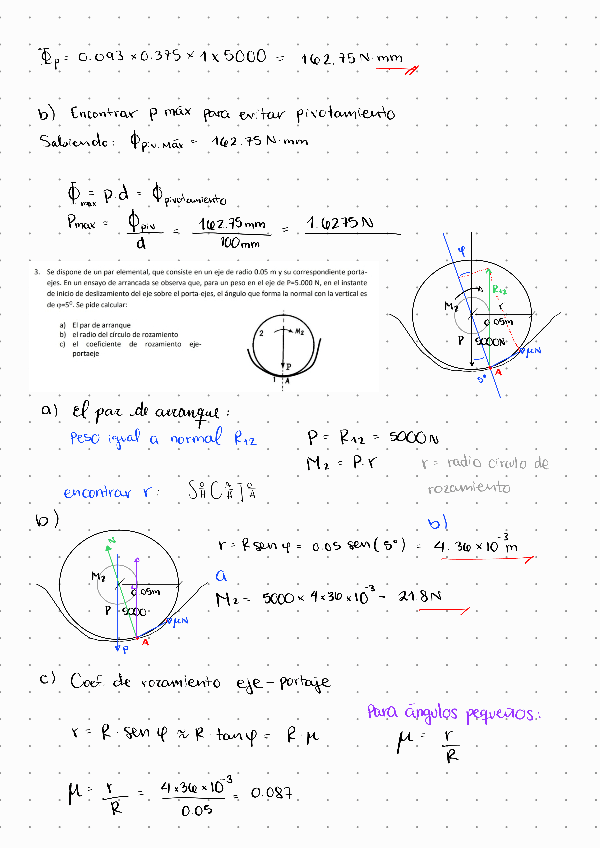 Φp = 0.093 × 0.375 × 1 × 5000 = 162.75 N·mm
b) Encontrar P máx para evitar pivotamiento
Sabiendo: Φpiv. Máx = 162.75 N·mm
Φmax = P·d = Φpivotamiento
Pmax = Φpiv / d = 162.75mm / 100mm = 1.6275 N
3. Se dispone de un par elemental, que consiste en un eje de radio 0.05 m y su correspondiente porta-
ejes. En un ensayo de arrancada se observa que, para un peso en el eje de P=5.000 N, en el instante
de inicio de deslizamiento del eje sobre el porta ejes, el ángulo que forma la normal con la vertical es
de φ=5º. Se pide calcular:
a) El par de arranque
b) el radio del círculo de rozamiento
c) el coeficiente de rozamiento eje-
portaeje
2 M2
P
1 A
φ
R12
M2 r
0.05m
P 5000N
μN
5° A
a) El par de arranque:
Peso igual a normal R12
P = R12 = 5000 N
M2 = P·r
r = radio círculo de
rozamiento
encontrar r:
b)
N
M2
0.05m
P 5000
μN
A
P
b)
r = R sen φ = 0.05 sen(5°) = 4.36×10⁻³ m
a
M2 = 5000 × 4.36×10⁻³ = 21.8 N
c) Coef. de rozamiento eje-portaje
r = R · sen φ ≈ R · tan φ = R·μ
Para ángulos pequeños:
μ = r / R
μ = r / R = 4.36×10⁻³ / 0.05 = 0.087